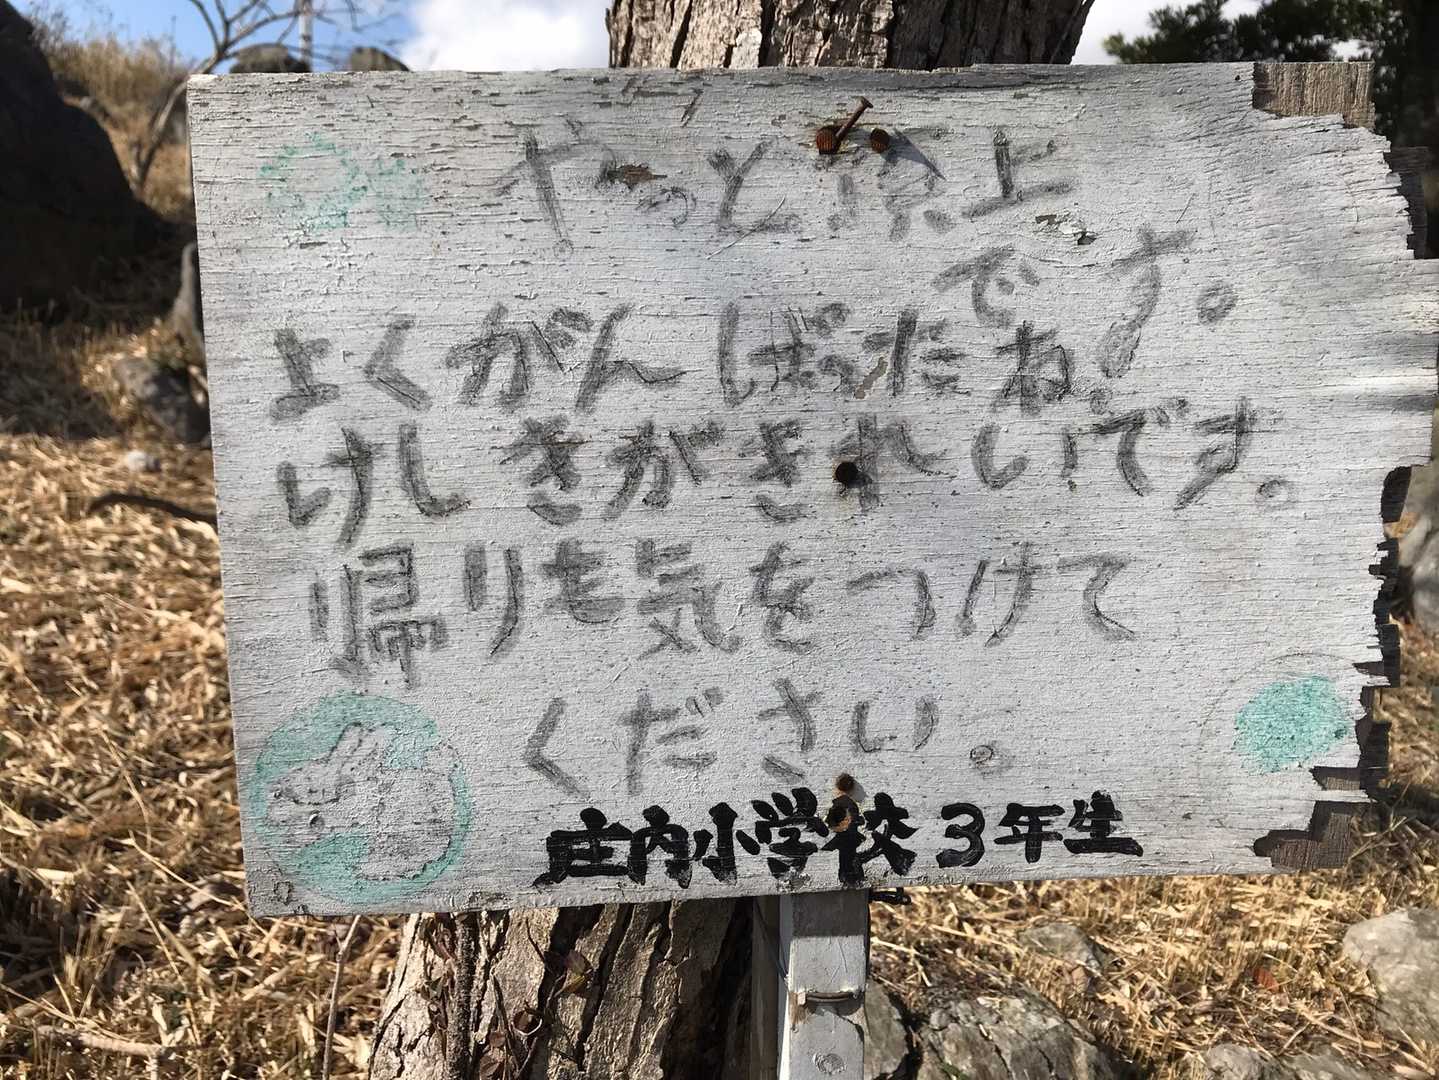 やっと頂上
です。
よくがんばったね!
けしきがきれいです。
帰りも気をつけて
ください。
庄内小学校3年生